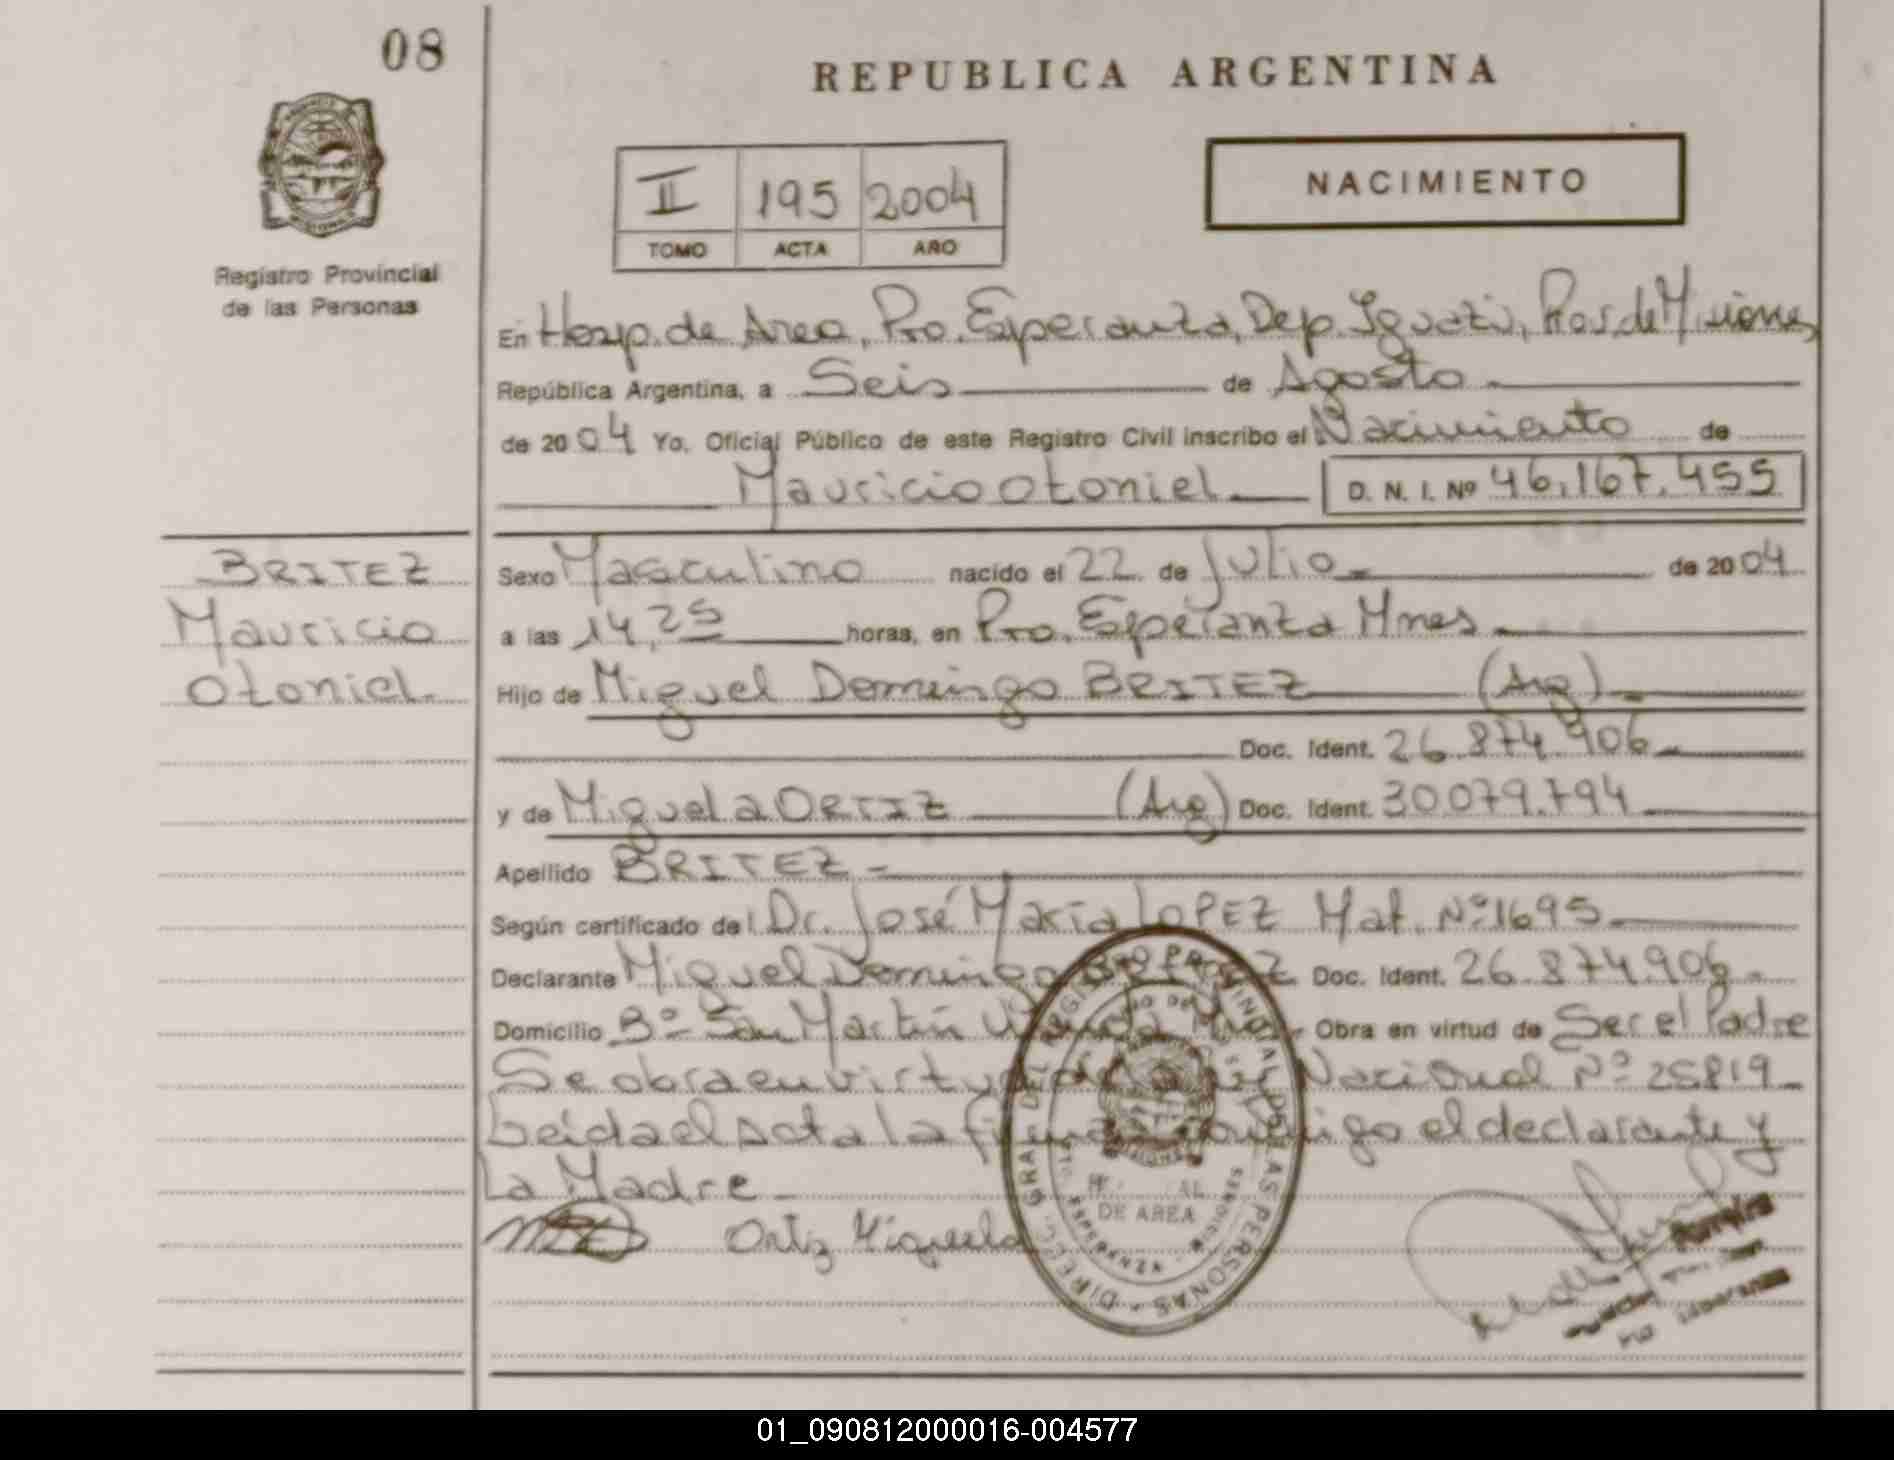 08
REPUBLICA ARGENTINA
NACIMIENTO
II 195 2004
TOMO ACTA AÑO
Registro Provincial
de las Personas
En Hosp. de Area, Pto. Esperanza, Dep. Iguazú, Prov. de Misiones
República Argentina, a Seis de Agosto
de 2004 Yo, Oficial Público de este Registro Civil inscribo el Nacimiento de
Mauricio Otoniel D. N. I. Nº 46.167.455
BRITEZ
Mauricio
Otoniel
Sexo Masculino nacido el 22 de Julio de 2004
a las 14,25 horas, en Pto. Esperanza Mnes
Hijo de Miguel Domingo BRITEZ (Arg)
Doc. Ident. 26.874.906
y de Miguela ORTIZ (Arg) Doc. Ident. 30.079.794
Apellido BRITEZ
Según certificado de Dr. José María LOPEZ Mat. Nº 1695
Declarante Miguel Domingo BRITEZ Doc. Ident. 26.874.906
Domicilio Bº San Martín Obra en virtud de Ser el Padre
Se obra en virtud de Ley Nacional Nº 25819
Leida el acta la firma conmigo el declarante y
La Madre
Ortiz Miguela
DIREC. GRAL. DEL REGISTRO PROVINCIAL DE LAS PERSONAS
DE AREA
01_090812000016-004577